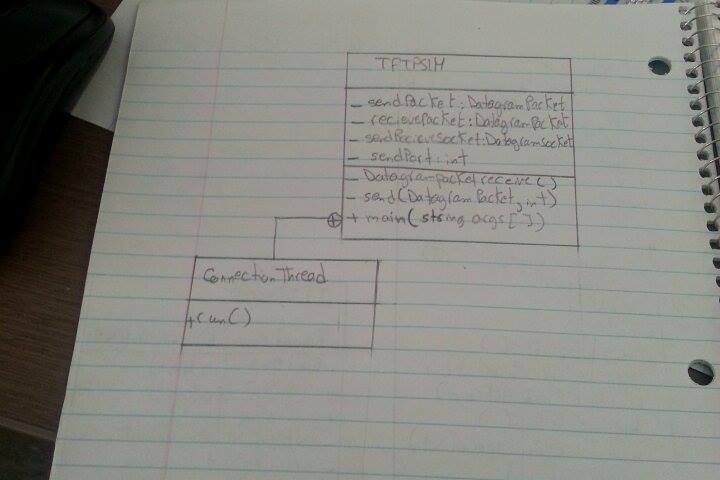 TFTPSIM
- sendPacket: DatagramPacket
- recievePacket: DatagramPacket
- sendRecieveSocket: DatagramSocket
- sendPort: int
- Datagrampacket receive()
- send(DatagramPacket, int)
+ main(string args[])
ConnectionThread
+run()